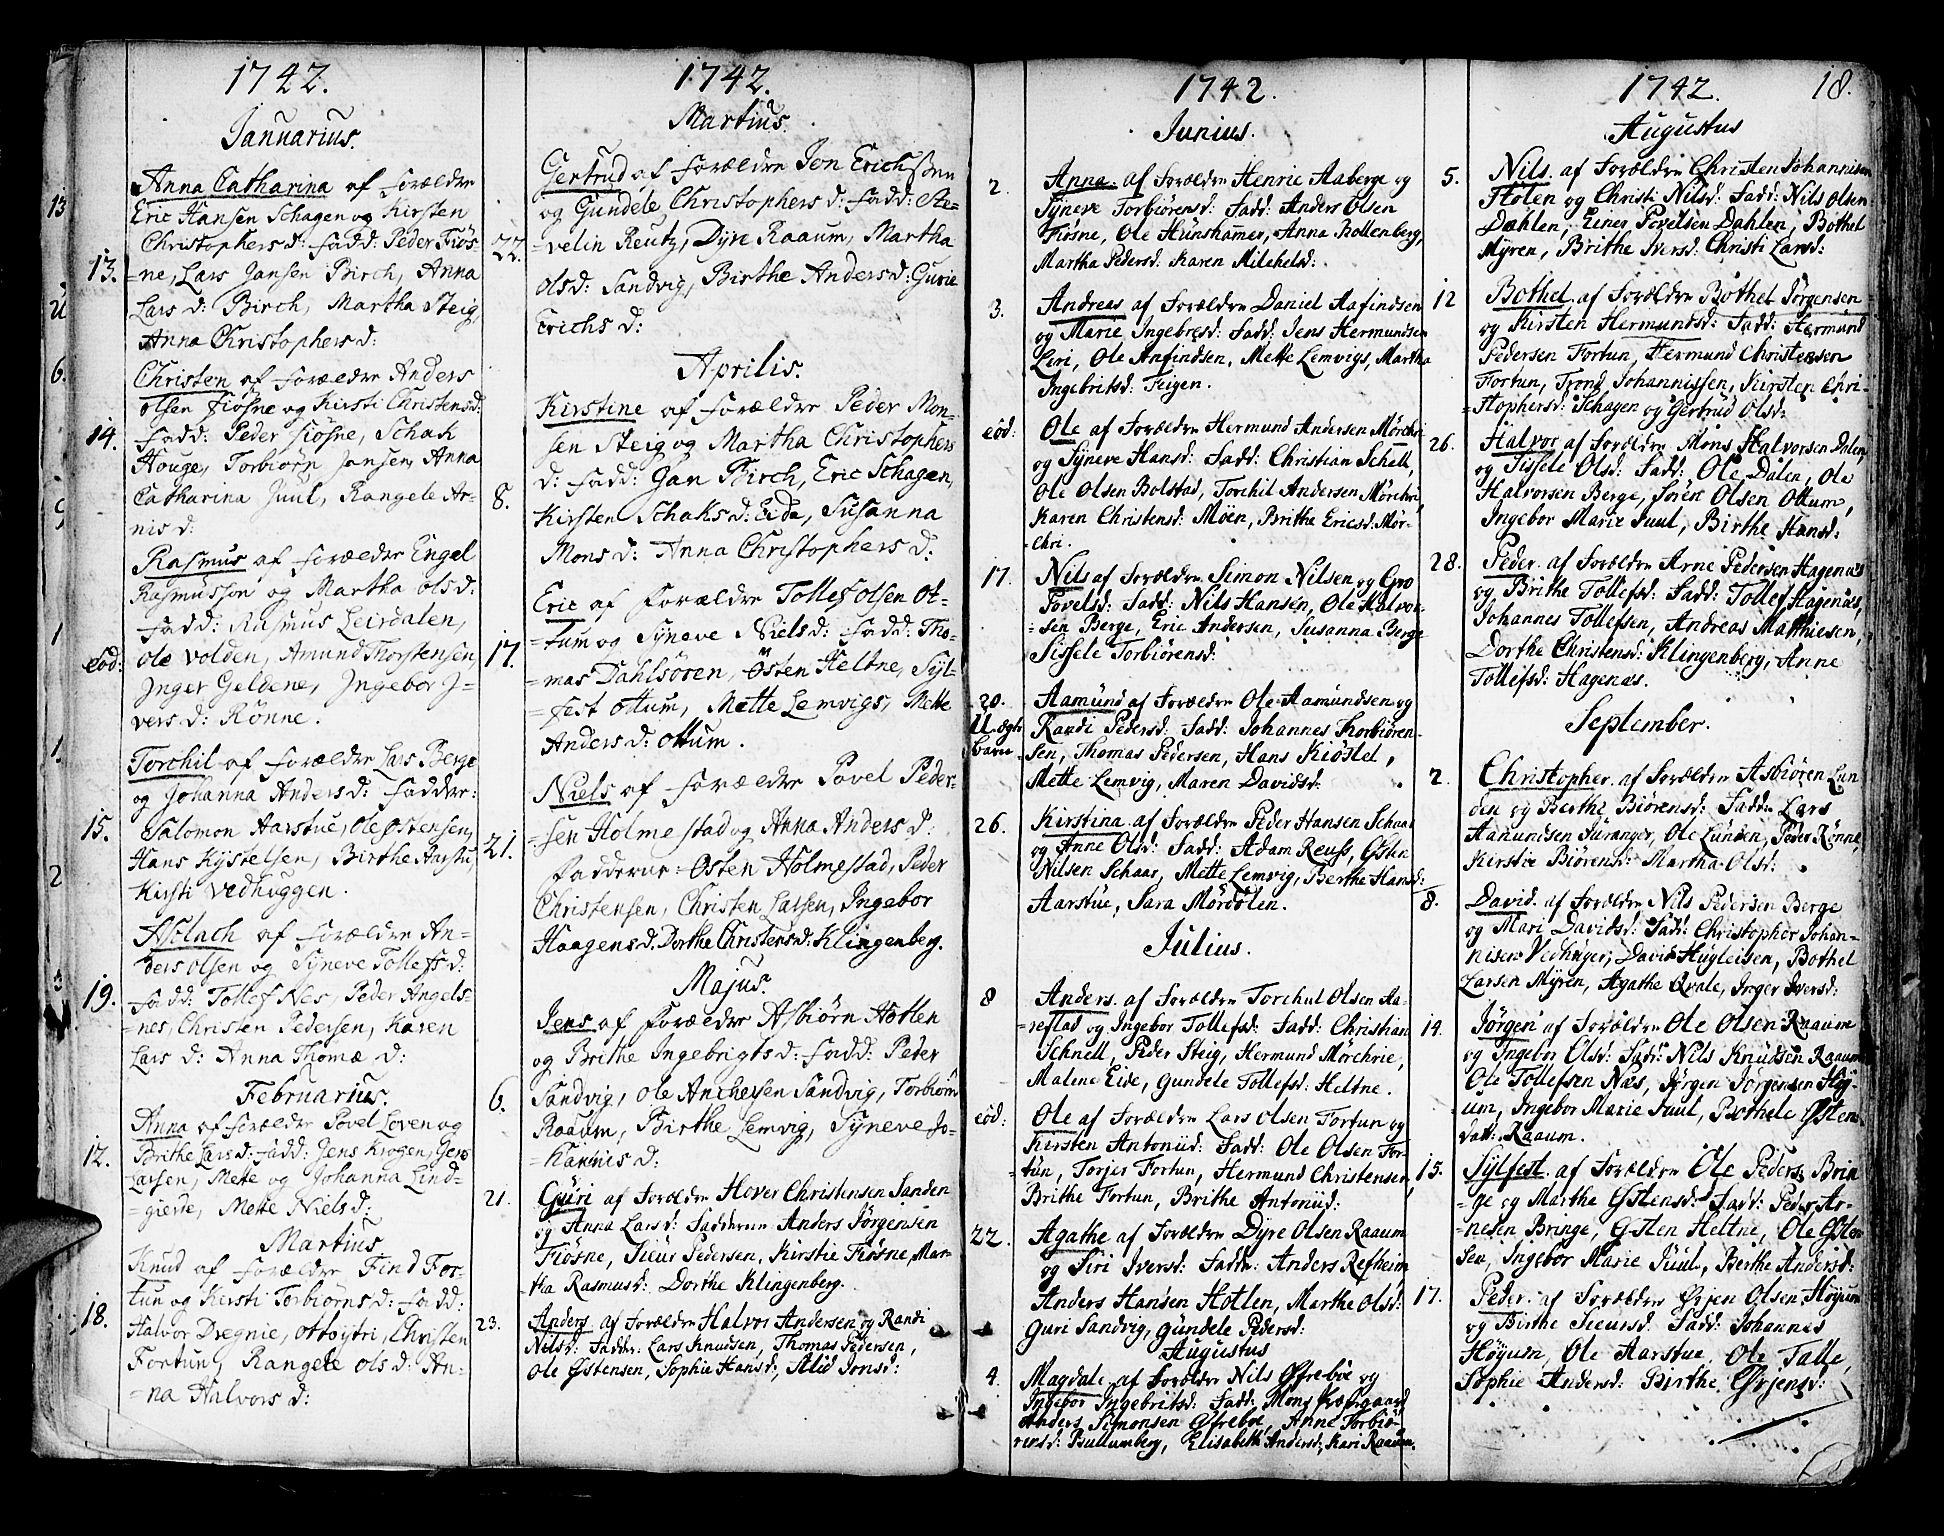 1742.
Januarius.
Anna Catharina af forældre
Eric Hansen Schagen og Kirsten
Christophers d: fadd: Peder Fiös
13. =ne, Lars Jansen Birch, Anna
Lars d: Birch, Martha Steig,
Anna Christophers d:
Christen af forældre Anders
olsen Fiösne og Kirsti Christensd:
14. fadd: Peder Fiösne, Schak
Houge, Torbiörn Jansen, Anna
Catharina Juul, Rangele Ar-
nis d:
Rasmus af forældre Engel
Rasmusson og Martha ols d:
fadd: Rasmus Leirdalen,
eod: ole volden, Amund Thorstensen,
Inger Geldene, Ingebor J-
vers d: Rönne.
Torchil af forældre Lars Berge
og Johanna Anders d: fadder:
15. Salomon Aarstue, Ole Østensen,
Hans Kystelsen, Birthe Aarstu,
Kirsti vedhuggen.
Aslach af forældre An-
ders olsen og Syneve Tollefs d:
19. fadd: Tollef Nes, Peder Angels-
=nes, Christen Pedersen, Karen
Lars d: Anna Thomæ d:
Februarius.
Anna af forældre Povel Loven og
12. Brithe Lars d: fadd: Jens Krogen, Gero
Larsen, Mette og Johanna Lind-
=gierde, Mette Niels d:
Martius
Knud af forældre Find For-
tun og Kirsti Torbiörns d: fadd:
18. Halvor Dregnie, otto ytri, Christen
Fortun, Rangele ols d: An-
=na Halvors d:
1742.
Martius.
Gertrud af forældre Jon Erichssön
og Gundele Christophers d: fadd: Æ-
22. =velin Reutz, Dyre Raaum, Martha
olsd: Sandvig, Birthe Anders d: Gurie
Erichs d:
Aprilis.
Kirstine af forældre Peder Mon-
sen Steig og Martha Christophers
d: fadd: Jan Birch, Eric Schagen,
8. Kirsten Schaks d: Eide, Susanna
Mons d: Anna Christophers d:
Eric af forældre Tollef olsen Ot-
17. =tum og Syneve Niels d: fadd: Tho-
=mas Dahlsören, Östen Heltne, Syl-
=fest ottum, Mette Lemvigs, Mette
Anders d: ottum.
Niels af forældre Povel Peder-
21. =sen Holmestad og Anna Anders d:
fadderne Østen Holmestad, Peder
Christensen, Christen Larsen, Ingebor
Haagens d. Dorthe Christens d: Klingenberg.
Majus.
Jens af forældre Asbiørn Hotlen
og Brithe Ingebrigts d: fadd: Peder
6. Sandvig, Ole Anchersen Sandvig, Torbiörn
Raaum, Birthe Lemvig, Syneve Jo-
=hannis d:
21. Guri af Forældre Hover Christensen Sanden
og Anna Lars d: Fadderne Anders Jörgensen
Fiösne, Sieur Pedersen, Kirstie Fiösne, Mar-
tha Rasmusd: Dorthe Klingenberg.
23. Anders af Forældre Halvor Andersen og Randi
Nilsd: Fadder: Lars Knudsen, Thomas Pedersen,
Ole Østensen, Sophie Hansd:, Alid Jonsd:
1742.
Junius.
2. Anna af Forældre Henric Aaberge og
Syneve Torbiörensd: Fadd: Anders Olsen
Fiosne, Ole Hunshamer, Anna Mollenberg,
Martha Pedersd: Karen Michelsd:
3. Andreas af Forældre Daniel Aafindsen
og Marie Ingebresd: Fadd: Jens Hermundsen
Leri, Ole Anfindsen, Mette Lemvigs, Martha
Ingebritsd: Feigen.
eod: Ole af Forældre Hermund Andersen Mörchri
og Syneve Hansd: Fadd: Christian Schell,
Ole Olsen Bolstad, Torchil Andersen Mörchri,
Karen Christensd: Möen, Brithe Ericsd: Mör-
chri.
17. Nils af Forældre Simon Nilsen og Gro
Povelsd: Fadd: Nils Hansen, Ole Halvor-
=sen Berge, Eric Andersen, Susanna Berge
Sissele Torbiörensd:
20. Aamund af Forældre Ole Aamundsen og
Uægte Randi Pedersd: Fadd: Johannes Thorbiören-
barn sen, Thomas Pedersen, Hans Kiöstel,
Mette Lemvig, Maren Davidsd:
26. Kirstina af Forældre Peder Hansen Schaar
og Anne Olsd: Fadd: Adam Reuss, Østen
Nilsen Schaar, Mette Lemvig, Berthe Hansd:
Aarstue, Sara Mördölen.
Julius.
8 Anders af Forældre Torchul Olsen Aa-
=restad og Ingebor Tollefsd: Fadd: Christian
Schnell, Peder Steig, Hermund Mörchrie,
Malene Eide, Gundele Tollefsd: Heltne.
eod: Ole af Forældre Lars Olsen Fortun og
Kirsten Antoniid: Fadd: Ole Olsen For-
=tun, Torjer Fortun, Hermund Christensen,
Brithe Fortun, Brithe Antoniid:
22. Agathe af Forældre Dyre Olsen Raaum
og Siri Iversd: Fadd: Anders Refheim,
Anders Hansen Hotlen, Marthe Olsd:
Guri Sandvig, Gundele Pedersd:
Augustus
4. Magdale af Forældre Nils Øfreböe og
Ingebor Ingebritsd: Fadd: Mons
Anders Simonsen Øfreboe, Anne Torbiö-
rensd: Bullumberg, Elisabeth Andersd: Kari Raaum.
1742. 18.
Augustus
5. Nils af Forældre Christen Johannisen
Holen og Christi Nilsd: Fadd: Nils Olsen
Dahlen, Einer Povelsen Dahlen, Bothel
Myren, Brithe Iversd: Christi Larsd:
12 Bothel af Forældre Bothel Jörgensen
og Kirsten Hermundsd: Fadd: Hermund
Pedersen Fortun, Hermund Christensen
Fortun, Trond Johannissen, Kirsten Chri-
=stophersd: Schagen og Gertrud Olsd:
26. Halvor af Forældre Mons Halvorsen Dalen
og Sissele Olsd: Fadd: Ole Dalen, Ole
Halvorsen Berge, Sören Olsen Ottum,
Ingebor Marie Juul, Birthe Hansd:
28. Peder af Forældre Arne Pedersen Hagenæs
og Brithe Tollefsd: Fadd: Tollef Hagenæs,
Johannes Tollefsen, Andreas Matthiesen,
Dorthe Christensd: Klingenberg, Anne
Tollefsd: Hagenæs.
September.
2. Christopher af Forældre Asbiören Lun-
den og Berthe Biörensd: Fadd: Lars
Aamundsen Furanger, Ole Lunden, Peder Rönne,
Kirstie Biörensd: Martha Olsd:
8. David af Forældre Nils Pedersen Berge
og Mari Davidsd: Fadd: Christopher Johan-
nisen Vedhuger, David Hugleisen, Bothel
Larsen Myren, Agathe Qvale, Inger Iversd:
14. Jörgen af Forældre Ole Olsen Raaum
og Ingebor Olsd: Fadd: Nils Knudsen Raaum
Ole Tollefsen Næs, Jörgen Jörgensen Höy-
um, Ingebor Marie Juul, Bothele Østens
datt: Raaum.
15. Sylfest af Forældre Ole Peders: Brin
=ge og Martha Østensd: Fadd: Peder Ar-
nesen Bringe, Østen Heltne, Ole Østen
sen, Ingebor Marie Juul, Berthe Andersd:
17. Peder af Forældre Ørjen Olsen Höyum
og Birthe Sieursd: Fadd: Johannes
Höyum, Ole Aarstue, Ole Talle,
Sophie Andersd: Birthe Ørjensd: